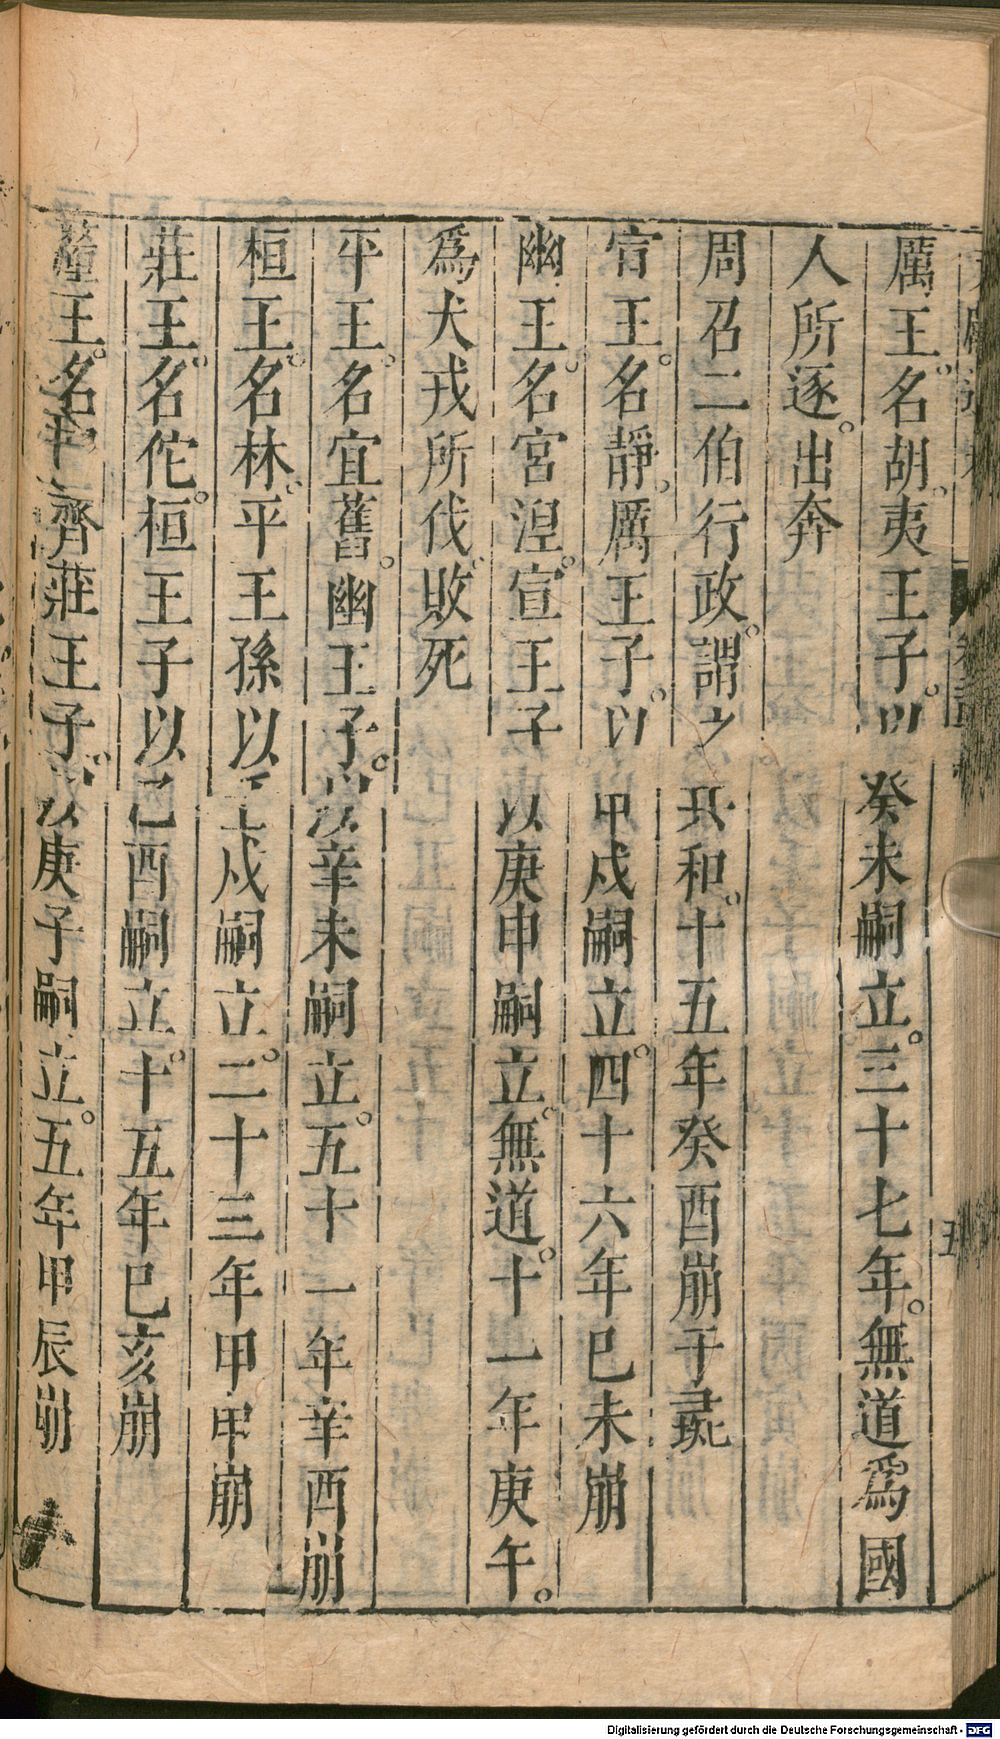 厲王。名胡。夷王子。以癸未嗣立。三十七年。無道爲國
人所逐。出奔
周召二伯行政。謂之共和。十五年癸酉崩于彘
宣王。名靜。厲王子。以甲戌嗣立。四十六年巳未崩
幽王。名宮湼。宣王子以庚申嗣立。無道。十一年庚午。
爲犬戎所伐。敗死
平王。名宜舊。幽王子。以辛未嗣立。五十一年辛酉崩
桓王。名林。平王孫以壬戌嗣立。二十三年甲申崩
莊王。名佗。桓王子以乙酉嗣立。十五年巳亥崩
釐王。名胡齊莊王子。以庚子嗣立。五年甲辰崩
五
Digitalisierung gefördert durch die Deutsche Forschungsgemeinschaft - DFG